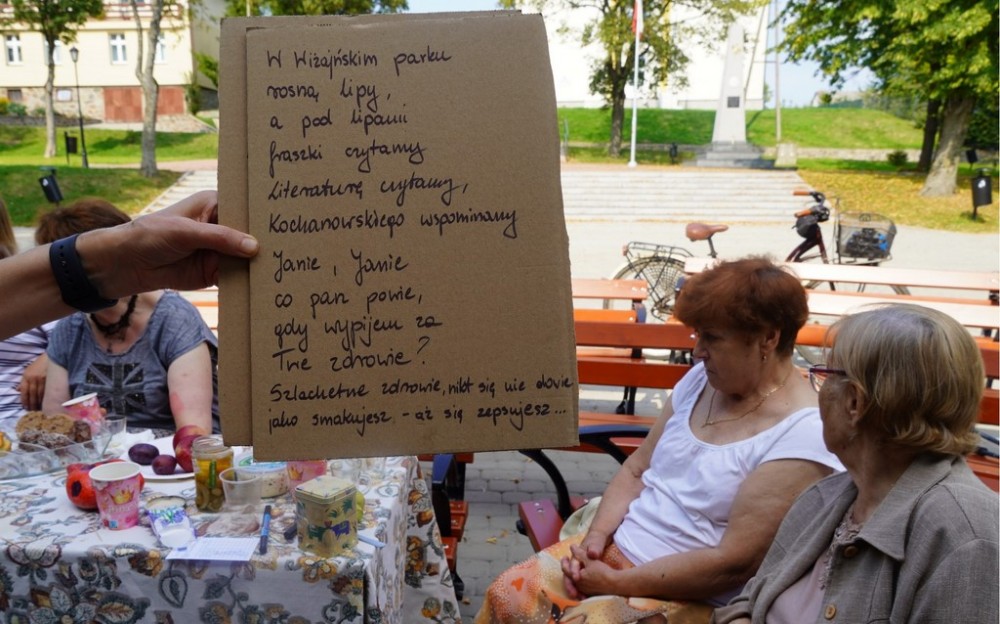 W Wiżajńskim parku
rosną lipy,
a pod lipami
fraszki czytamy
Literaturę czytamy,
Kochanowskiego wspominamy
Janie, Janie
co pan powie,
gdy wypijem za
Twe zdrowie?
Szlachetne zdrowie, nikt się nie dowie
jako smakujesz - aż się zepsujesz...